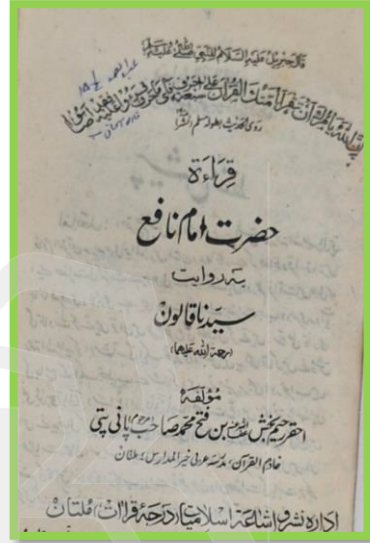 قال جبریل علیہ السلام للنبی صلی اللہ علیہ وسلم
ان اللہ یامرک ان تقرأ امتک القرآن علی سبعة احرف فایما حرف قرءوا علیہ فقد اصابوا
قِرَاءَة
حضرت امام نافع
بہ روایت
سیدنا قالون
(رحمۃ اللہ علیہما)
مؤلفہ
احقر رحیم بخش عفا اللہ عنہ بن فتح محمد صاحب مرحوم پانی پتی
خادم القرآن، مدرسہ عربی خیر المدارس، ملتان
ادارہ نشر و اشاعۃ اسلامیات درجۂ قراٰت، ملتان